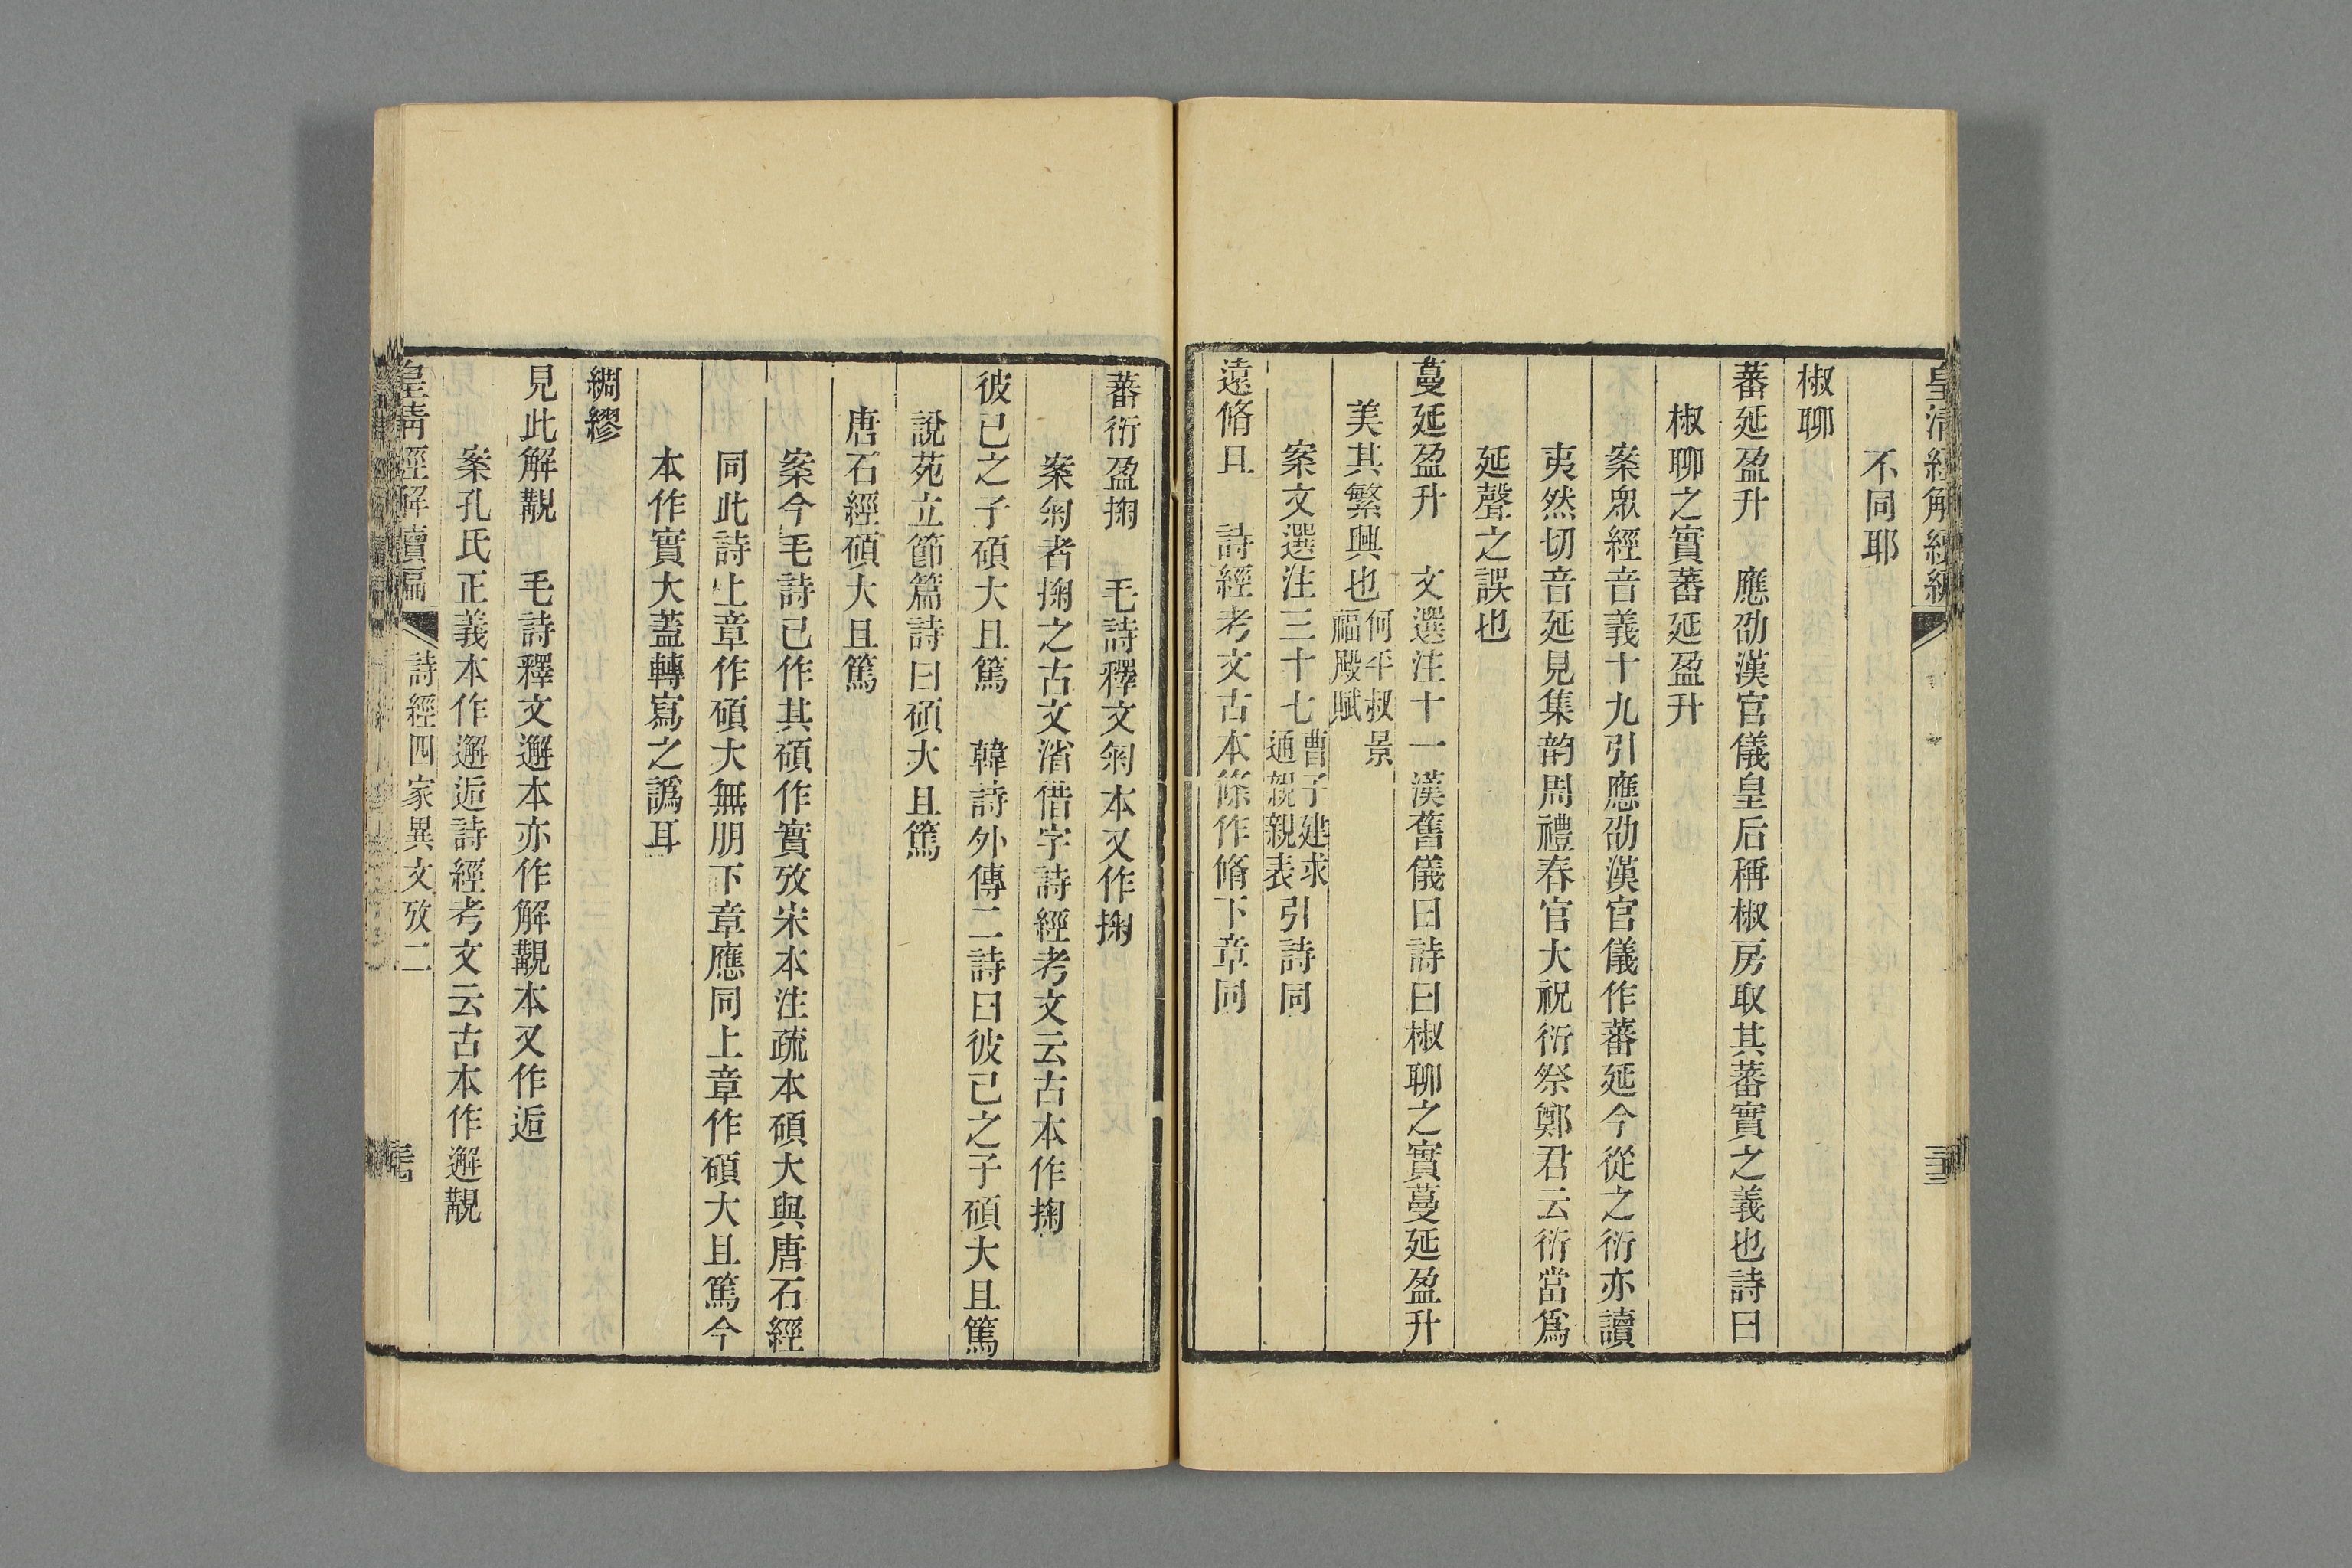 皇清經解續編
不同耶
椒聊
蕃延盈升　應劭漢官儀皇后稱椒房取其蕃實之義也詩曰
椒聊之實蕃延盈升
案眾經音義十九引應劭漢官儀作蕃延今從之衍亦讀
夷然切音延見集韵周禮春官大祝衍祭鄭君云衍當爲
延聲之誤也
蔓延盈升　文選注十一漢舊儀曰詩曰椒聊之實蔓延盈升
美其繁興也何平叔景福殿賦
案文選注三十七曹子建求通親親表引詩同
遠脩且　詩經考文古本條作脩下章同
蕃衍盈掬　毛詩釋文匊本又作掬
案匊者掬之古文渻借字詩經考文云古本作掬
彼已之子碩大且篤　韓詩外傳二詩曰彼已之子碩大且篤
說苑立節篇詩曰碩大且篤
唐石經碩大且篤
案今毛詩己作其碩作實攷宋本注疏本碩大與唐石經
同此詩上章作碩大無朋下章應同上章作碩大且篤今
本作實大蓋轉寫之譌耳
綢繆
見此解覯　毛詩釋文邂本亦作解覯本又作逅
案孔氏正義本作邂逅詩經考文云古本作邂覯
皇清經解續編
詩經四家異文攷二